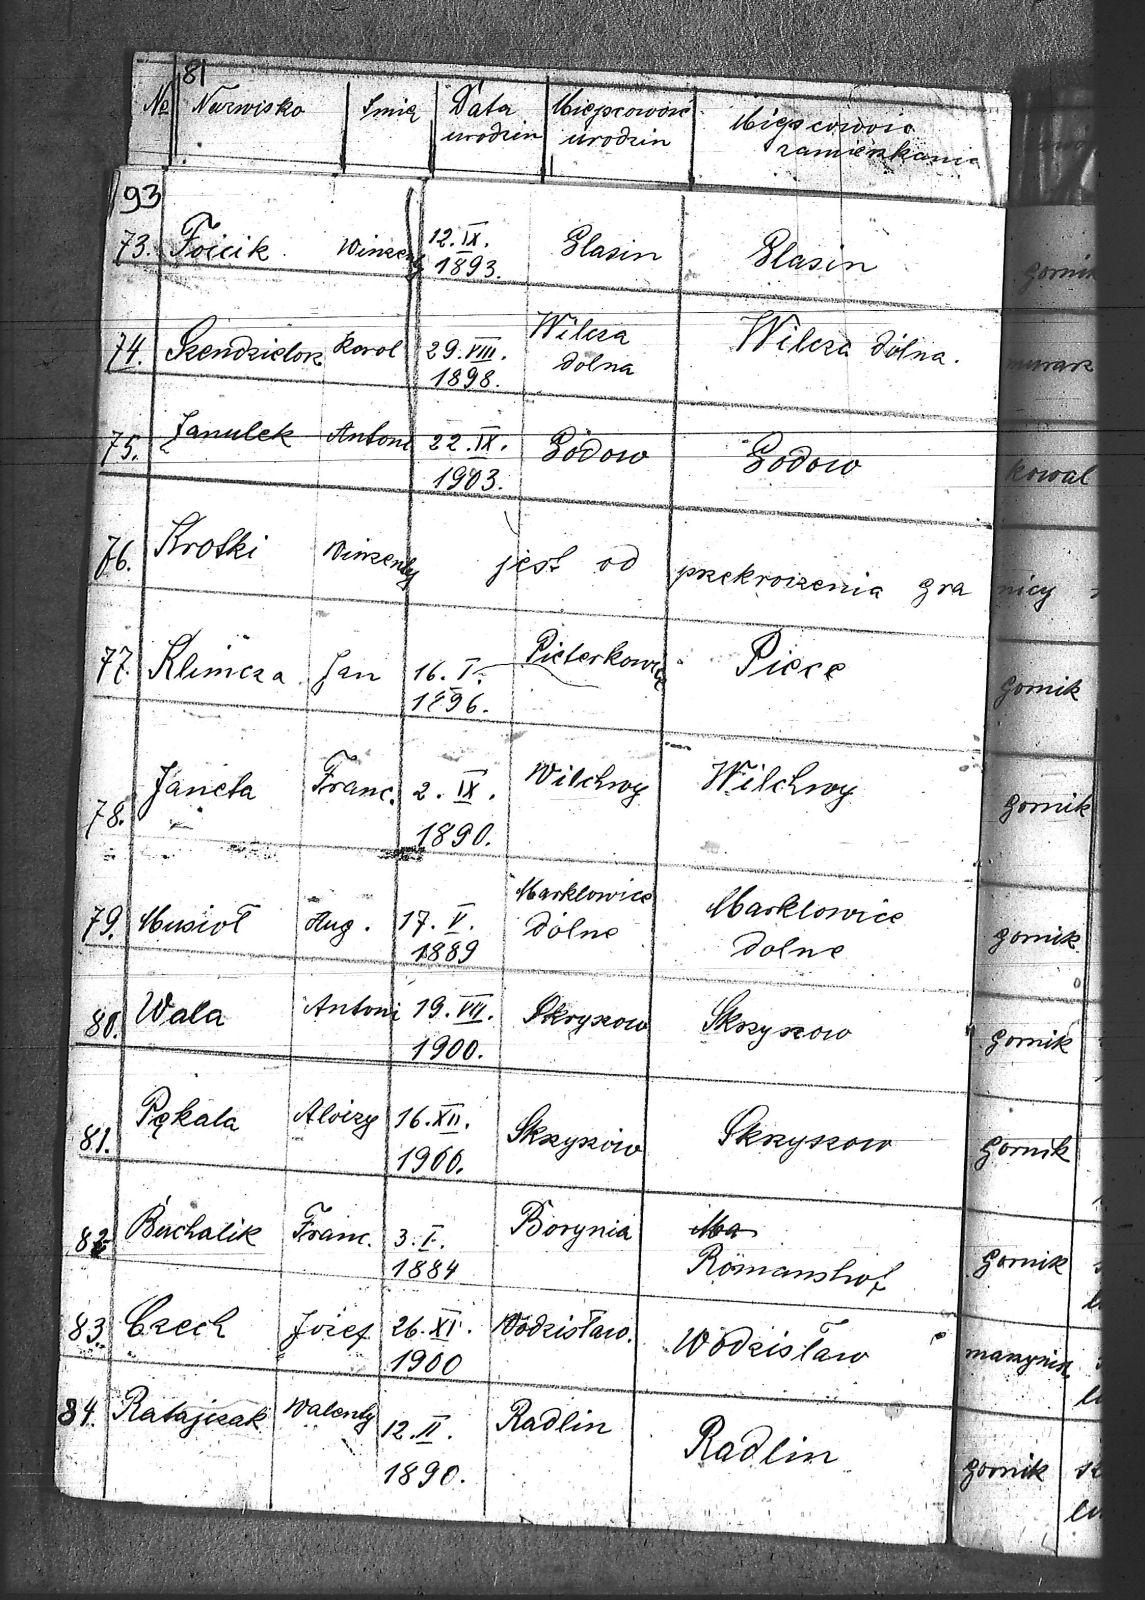 81
№ Nazwisko Imię Data urodzin Miejscowość urodzin Miejscowość zamieszkania
93
73. Foicik Winzenty 12.IX. 1893. Glasin Glasin gornik
74. Szendzielorz Karol 29.VIII. 1898. Wilcza dolna Wilcza dolna. murarz
75. Janulek Antoni 22.IX. 1903. Godow Godow kowal
76. Krotki Winzenty jest od przekroczenia gra nicy
77. Klimcza Jan 16.I. 1896. Piece gornik
78. Janeta Franc. 2.IX. 1890. Wilchwy Wilchwy gornik
79. Musioł Aug. 17.V. 1889 Marklowice dolne Marklowice dolne gornik
80. Wala Antoni 19.VII. 1900. Skryszow Skrzyszow gornik
81. Pękala Aloizy 16.XII. 1900. Skrzyszow Skrzyszow gornik
82 Buchalik Franc. 3.I. 1884 Borynia Ma Romanshof gornik
83. Czech Józef 26.XI. 1900 Wodzisław. Wodzisław maszynist
84. Ratajczak Walenty 12.II. 1890. Radlin Radlin gornik